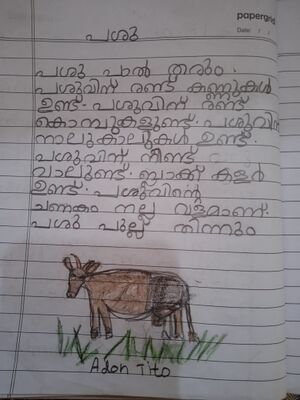 papergrid
Date: / /
പശു
പശു പാൽ തരും.
പശുവിന് രണ്ട് കണ്ണുകൾ
ഉണ്ട്. പശുവിന് രണ്ട്
കൊമ്പുകളുണ്ട്. പശുവിന്
നാലുകാലുകൾ ഉണ്ട്.
പശുവിന് നീണ്ട
വാലുണ്ട്. ബ്ലാക്ക് കളർ
ഉണ്ട്. പശുവിന്റെ
ചണകം നല്ല വളമാണ്.
പശു പുല്ല് തിന്നും
Adon Tito